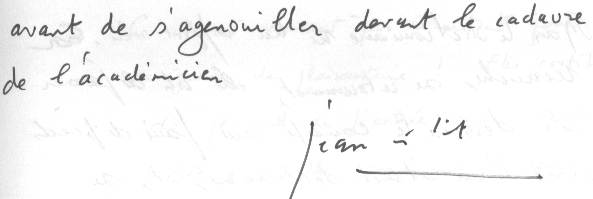 avant de s'agenouiller devant le cadavre
de l'académicien
Jean